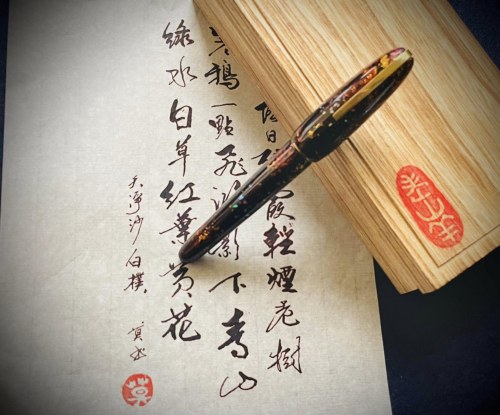 日霞輕煙老樹
寒鴉一點飛鴻影下青山
綠水白草紅葉黃花
天淨沙白樸